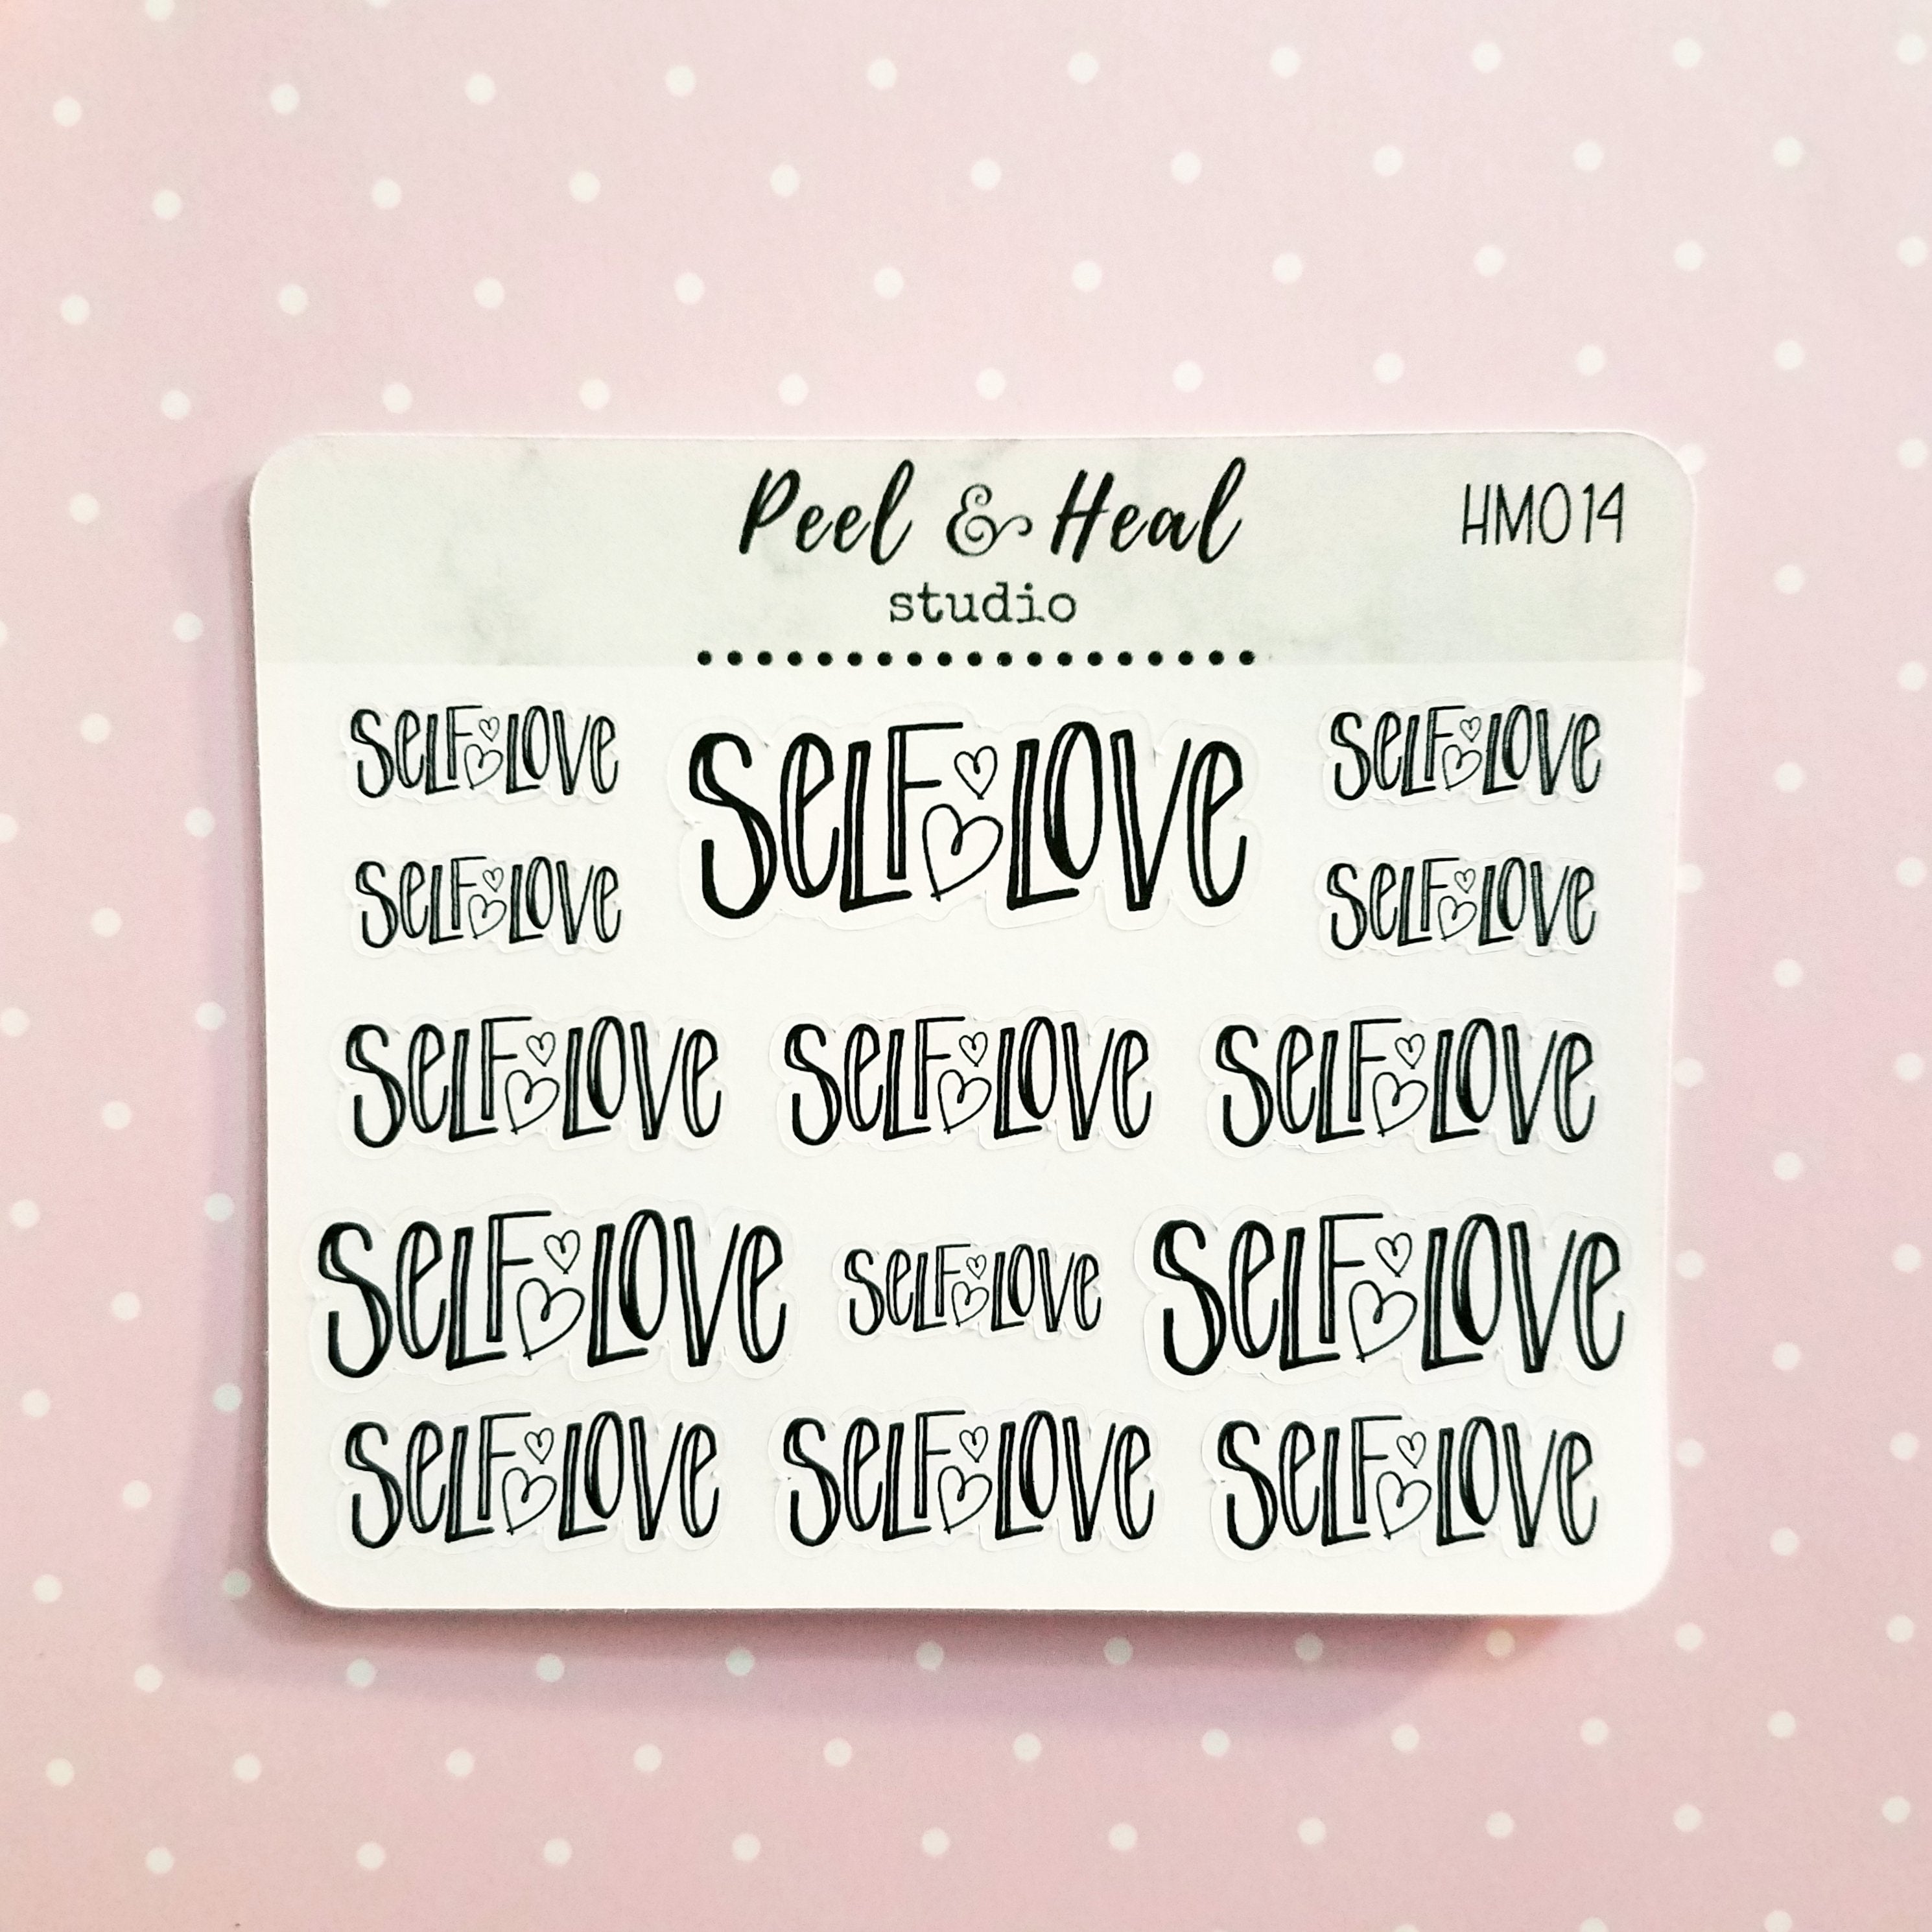 Peel & Heal
HM014
studio
SELF LOVE
SELF LOVE
SELF LOVE
SELF LOVE
SELF LOVE
SELF LOVE
SELF LOVE
SELF LOVE
SELF LOVE
SELF LOVE
SELF LOVE
SELF LOVE
SELF LOVE
SELF LOVE